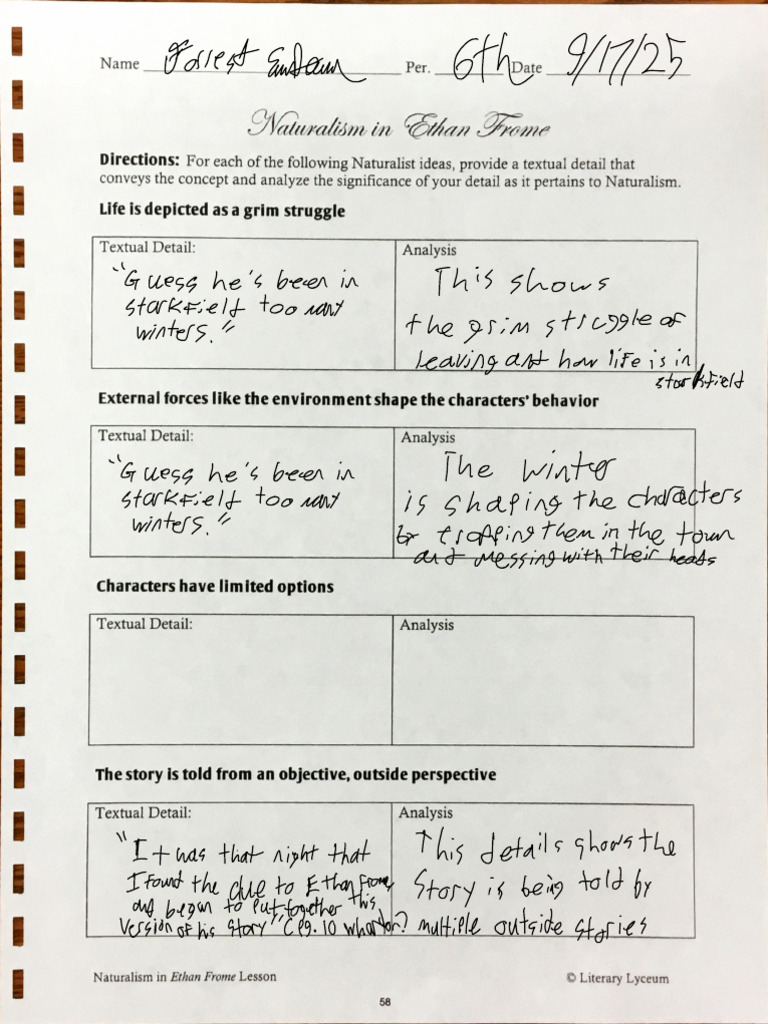 Name Forrest Per. 6th Date 9/17/25
Naturalism in Ethan Frome
Directions: For each of the following Naturalist ideas, provide a textual detail that
conveys the concept and analyze the significance of your detail as it pertains to Naturalism.
Life is depicted as a grim struggle
Textual Detail:
"Guess he's been in
starkfield too many
winters."
Analysis
This shows
the grim struggle of
leaving and how life is in
starkfield
External forces like the environment shape the characters' behavior
Textual Detail:
"Guess he's been in
starkfield too many
winters."
Analysis
The winter
is shaping the characters
by trapping them in the town
and messing with their heads
Characters have limited options
Textual Detail:
Analysis
The story is told from an objective, outside perspective
Textual Detail:
"It was that night that
I found the clue to Ethan Frome,
and began to put together this
version of his story" (pg. 10 Wharton)
Analysis
This details shows the
story is being told by
multiple outside stories
Naturalism in Ethan Frome Lesson
© Literary Lyceum
58